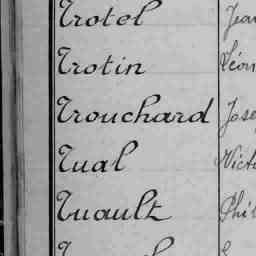 Trotel
Trotin Léon
Trouchard Jose
Tual Victo
Tuault Phil